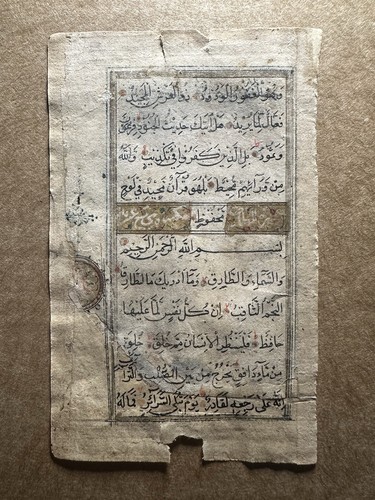 وهو الغفور الودود ذو العرش المجيد
فعال لما يريد هل اتيك حديث الجنود فرعون
وثمود بل الذين كفروا في تكذيب والله
من ورائهم محيط بل هو قرآن مجيد في لوح
محفوظ
بسم الله الرحمن الرحيم
والسماء والطارق وما ادريك ما الطارق
النجم الثاقب ان كل نفس لما عليها
حافظ فلينظر الانسان مم خلق خلق
من ماء دافق يخرج من بين الصلب والترائب
انه على رجعه لقادر يوم تبلى السرائر فما له